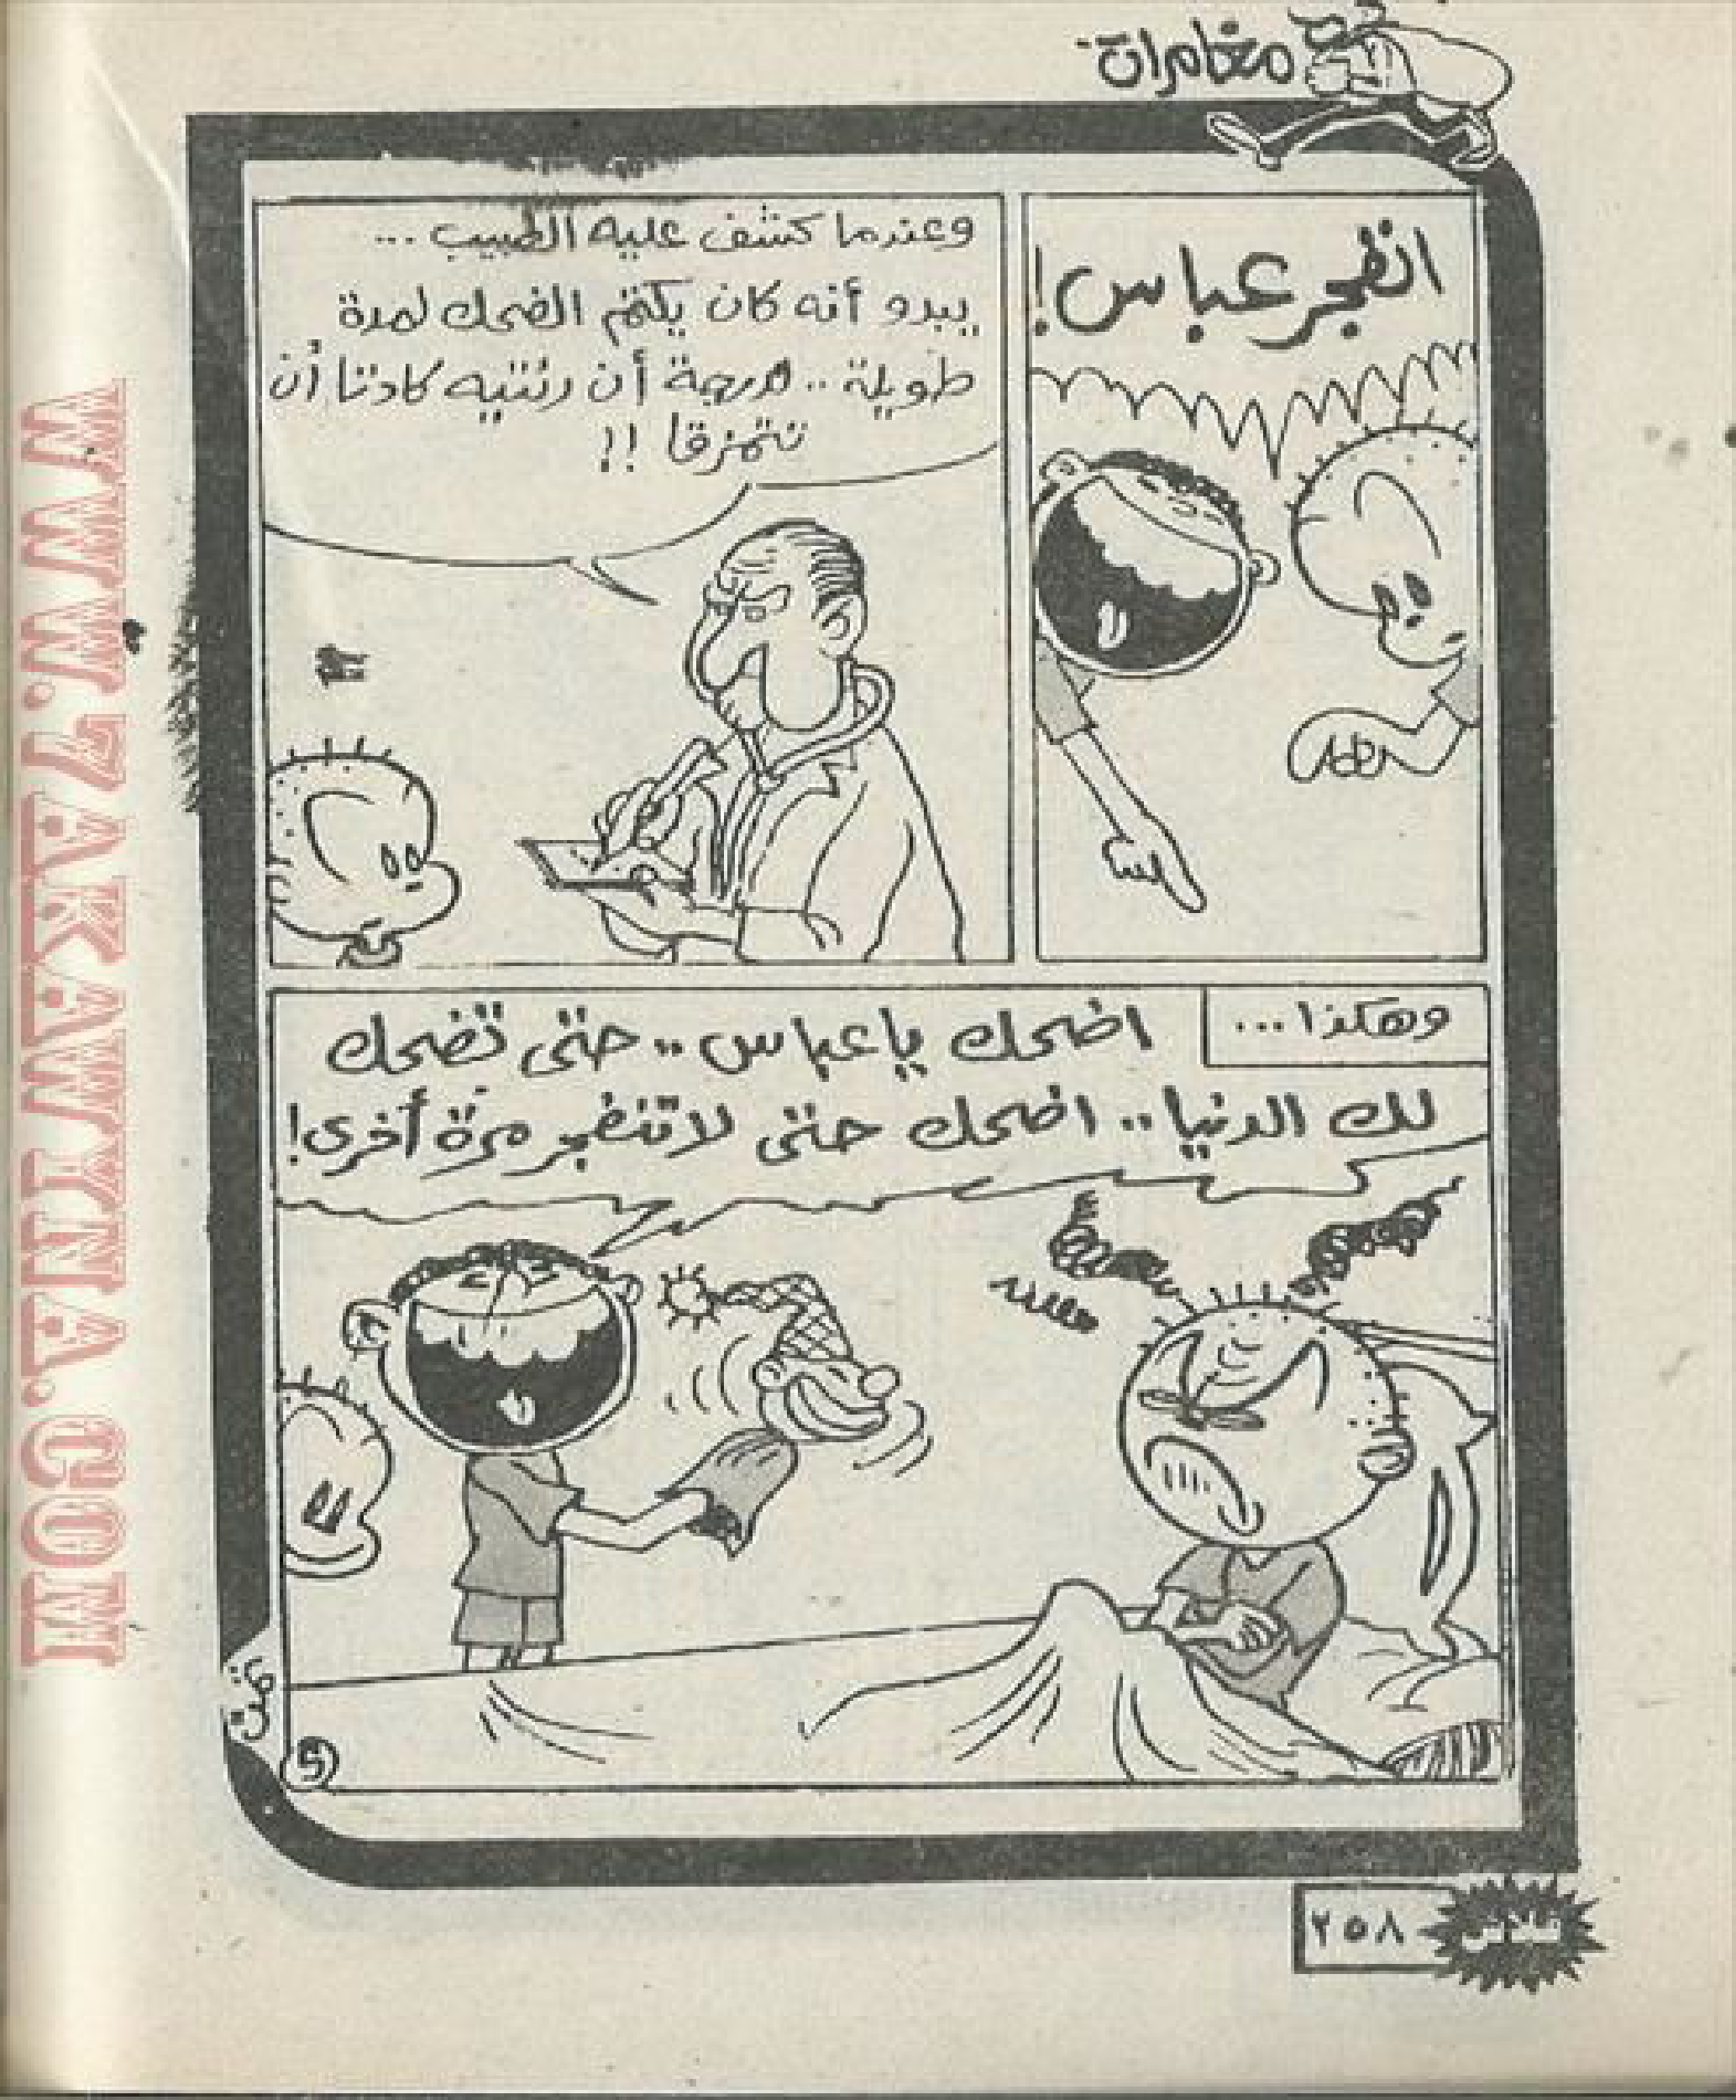 مغامرات
انفجر عباس!
وعندما كشف عليه الطبيب ...
يبدو أنه كان يكتم الضحك لمدة
طويلة .. لدرجة أن رئتيه كادتا أن
تتمزقا !!
!!
وهكذا ...
اضحك يا عباس .. حتى تضحك
لك الدنيا .. اضحك حتى لا تنفجر مرة أخرى!
تمت
5
٢٥٨
فلاش
WWW.7AKAWITNA.COM